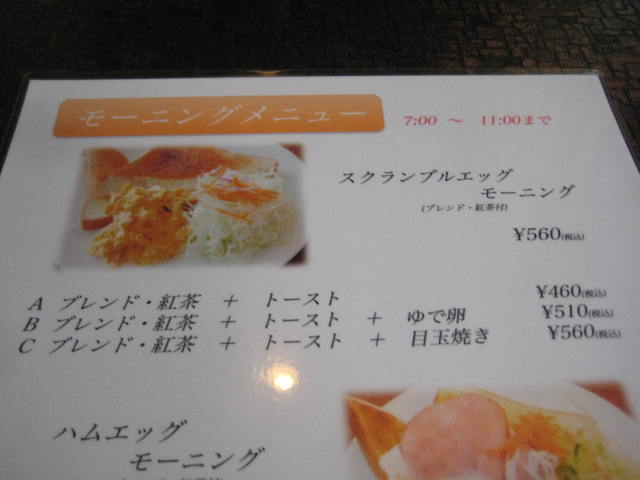 モーニングメニュー
7:00 ～ 11:00まで
スクランブルエッグ
モーニング
(ブレンド・紅茶付)
¥560(税込)
A ブレンド・紅茶 + トースト ¥460(税込)
B ブレンド・紅茶 + トースト + ゆで卵 ¥510(税込)
C ブレンド・紅茶 + トースト + 目玉焼き ¥560(税込)
ハムエッグ
モーニング